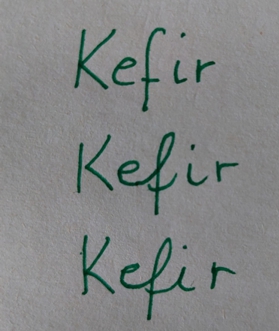 Kefir
Kefir
Kefir